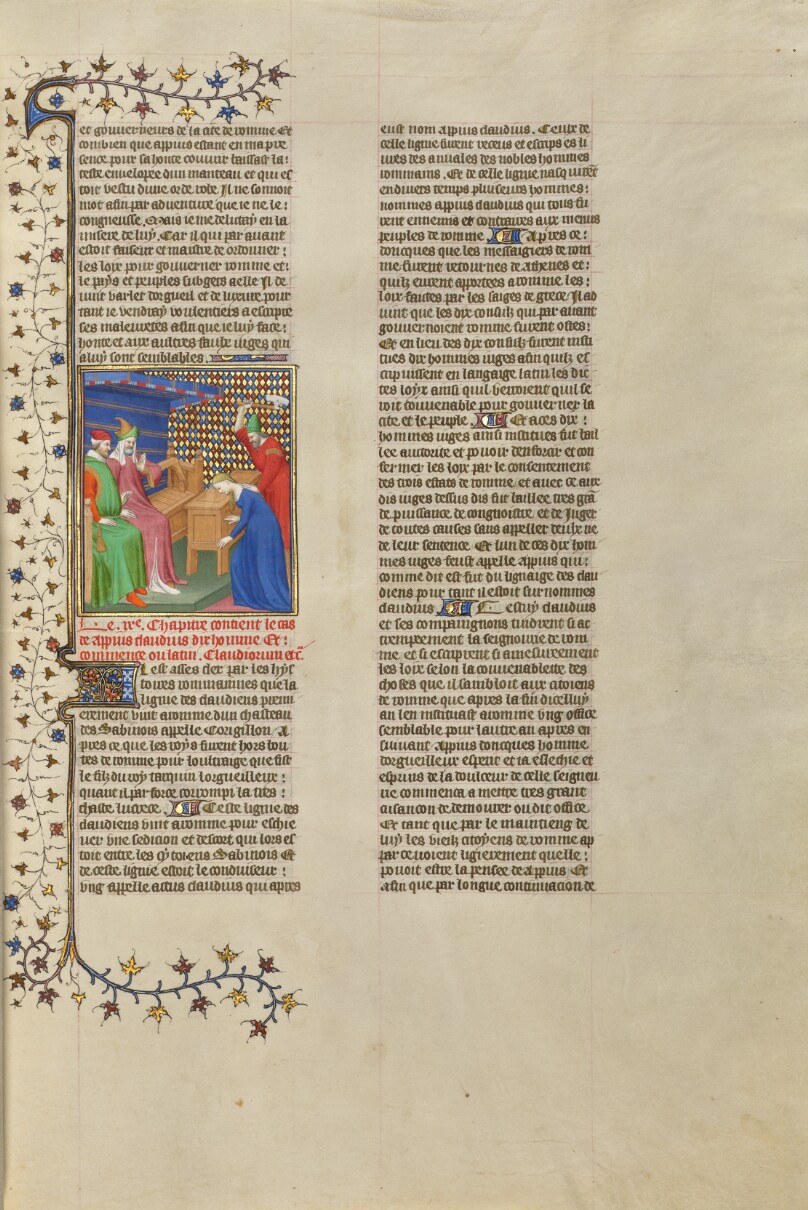 et gouverneurs de la cite de romme Et
combien que appius estant en ma pre
sence pour sa honte couvrir baissast la
teste envelopee dun manteau et qui es
toit vestu dune orde robe Il ne sonnoit
mot afin par adventure que ie ne le
congneusse. Mais ie me delitay en la
misere de luy. Car il qui par avant
estoit faiseur et maistre de ordonner
les loix pour gouverner romme et
le pays et peuples subgetz a elle Il de
vint varlet dorgueil et de luxure. pour
tant ie vendray voulentiers a escripre
ses maleurtes afin que ie luy face
honte et aux aultres faulx iuges qui
a luy sont semblables.
Le .ixe. Chapitre contient le cas
de appius claudius dix homme Et
commence ou latin. Claudiorum etc.
Il est asses cler par les hys
toires rommainnes que la
ligne des claudiens premi
erement vint a romme dun chasteau
des Sabinois appelle Corigillon A
pres ce que les roys furent hors bou
tes de romme pour loultraige que fist
le filz du roy tarquin lorgueilleux
quant il par force corrompi la tres
chaste lucrece. Ceste ligne des
claudiens vint a romme pour eschie
uer vne sedicion et descort qui lors es
toit entre les cytoiens Sabinois Et
de ceste ligne estoit le conduiseur
vng appelle actus claudius qui apres
eust nom appius claudius. Ceulx de
celle ligne furent receus et escrips es li
ures des annales des nobles hommes
rommains. Et de celle ligne nasquirent
en divers temps pluseurs hommes
nommes appius claudius qui tous fu
rent ennemis et contraires aux menus
peuples de romme Apres ce
doncques que les messaigiers de rom
me furent retournes de athenes et
quilz eurent apportees a romme les
loix faictes par les saiges de grece Il ad
uint que les dix consulz qui par avant
gouvernoient romme furent ostes
Et en lieu des dix consulz furent insti
tues dix hommes iuges afin quilz es
cripuissent en langaige latin les dic
tes loyx ainsi quil verroient quil se
roit convenable pour gouverner la
cite. et le peuple. Et a ces dix
hommes iuges ainsi institues fut bail
lee auctorite et povoir densoxer et con
fermer les loix par le consentement
des trois estatz de romme. et avec ce aux
dis iuges dessus dis fut baillee tres grant
de puissance de congnoistre et de Juger
de toutes causes sans appeller deulx ne
de leur sentence Et lun de ces dix hom
mes iuges feust appelle appius qui
comme dit est fut du lignaige des clau
diens pour tant il estoit surnommes
claudius Cestuy claudius
et ses compaingnons tindrent si at
trempeement la seignourie de rom
me et si escriprent si amesureement
les loix selon la convenablete des
choses que il sambloit aux citoiens
de romme que apres la fin dicelluy
an len instituast a romme vng office
semblable pour lautre an apres en
suivant appius doncques homme
dorgueilleux esperit et ia eslechie et
espruis de la doulceur de celle seigneu
rie commenca a mettre tres grant
cusancon de demourer ou dit office
Et tant que par le maintieng de
luy les vieilz citoyens de romme ap
parcevoient ligierement quelle
povoit estre la pensee de appuis Et
afin que par longue continuacion de